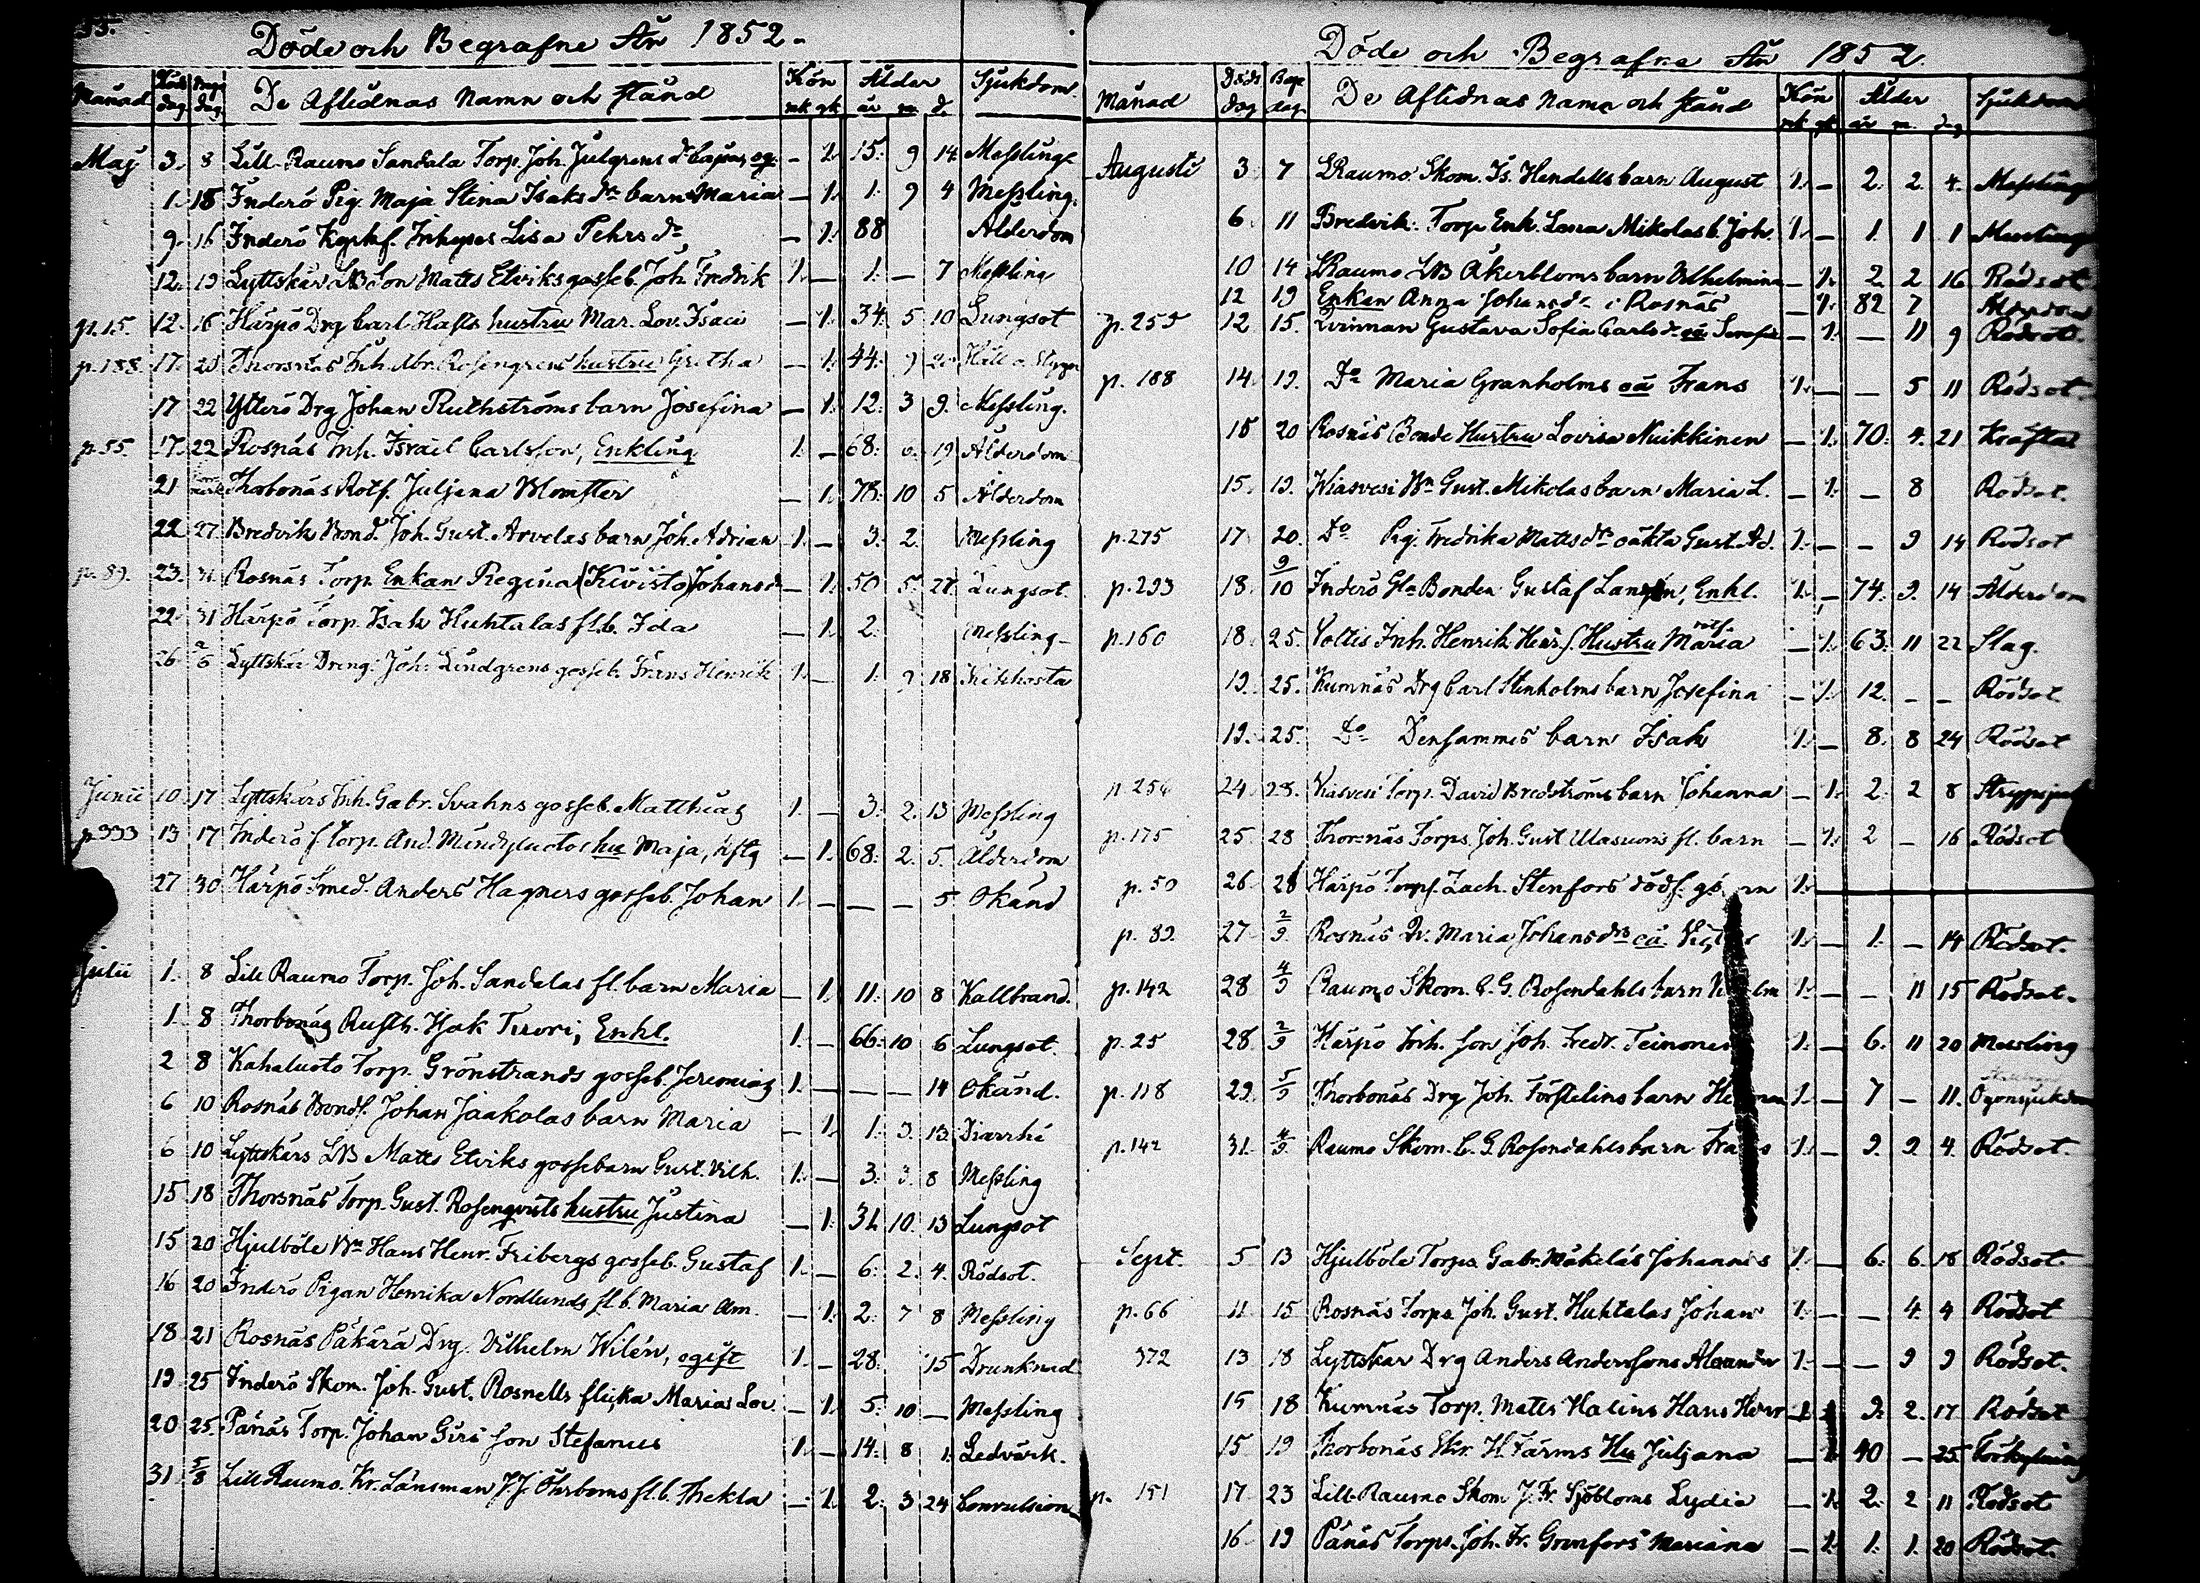 Döde och Begrafne År 1852.
Månad Döds dag Begr. dag De Aflidnas Namn och stånd Kön mk qk Ålder år m. d. Sjukdom.
Maj 3. 8 Lill Raumo Sandala Torp. Joh. Julgrens dr Cajsa, og. – 1. 15. 9 14 Messling
1. 18 Inderö Pig. Maja Stina Isaks dr barn Maria – 1. 1. 9 4 Messling.
9. 16 Inderö Kyrkf. Inhyses Lisa Pehrs dr – 1. 88 Ålderdom
12. 19 Lyttskär LB Son Matts Elviks gosseb. Joh. Fredrik 1. – 1. – 7 Messling
p. 15. 12. 16 Härpö Drg Carl Hafts hustru Mar. Lov. Isaci – 1. 34. 5 10 Lungsot
p. 188. 17. 23 Thorsnäs Inh. Abr. Rosengrens hustru Gretha – 1. 44. 9 20 Håll o. Stygn
17 22 Ytterö Drg Johan Ruthströms barn Josefina – 1. 12. 3 9. Messling.
p. 55. 17. 22 Rosnäs Inh. Israel Carlsson, Enkling 1. – 68. 0. 19 Ålderdom
21 Thorbonäs Rotf. Juljana Blomster – 1. 78. 10 5 Ålderdom
22 27. Bredvik Bond. Joh. Gust. Arvelas barn Joh. Adrian 1. – 3. 2. Messling
p. 89. 23. 31. Rosnäs Torp. Enkan Regina (Kivistö) Johansd – 1. 50 5. 27. Lungsot.
22. 31 Härpö Torp. Isak Huhtalas fl.b. Ida – 1. 2. Messling –
26. 2/6 Lyttskär Dreng. Joh. Lindgrens gosseb. Frans Henrik 1. – 1. 9 18 Kikhosta
Junii 10. 17 Lyttskärs Inh. Gabr. Svahns gosseb. Matthias 1. – 3. 2. 13 Messling
p. 333 13 17. Inderö f. Torp. And. Mindyluotos hu Maja, 1. 68. 2. 5. Ålderdom
27 30 Härpö Smed. Anders Hagners gosseb. Johan 1. – – – 5 Okänd
Julii 1. 8 Lill Raumo Torp. Joh. Sandalas fl. barn Maria – 1. 11. 10 8 Kallbrand.
1. 8 Thorbonäs Rusth. Isak Tuori, Enkl. 1. – 66. 10 6 Lungsot.
2 8 Kahaluoto Torp. Grönstrands gosseb. Jeremias 1. – – – 14 Okänd.
6 10 Rosnäs Bondf. Johan Jaakolas barn Maria – 1. 1. 3. 13. Diarrhé
6 10 Lyttskärs LB Matts Elviks gossebarn Gust. Vilh. 1. – 3. 3. 8 Messling
15. 18 Thorsnäs Torp. Gust. Rosenqvists hustru Justina – 1. 31. 10. 13 Lungsot
15 20 Hjulböle Bn Hans Henr. Fribergs gosseb. Gustaf 1. – 6. 2. 4. Rödsot.
16 20 Inderö Pigan Henrika Nordlunds fl.b. Maria Am. – 1. 2. 7 8 Messling
18. 21 Rosnäs Päkärä Drg. Vilhelm Wilén, ogift 1. – 28. 15 Drunknad
19. 25 Inderö Skom. Joh. Gust. Rosnells flicka Maria Lov. – 1. 5. 10 – Messling
20 25. Pänäs Torp. Johan Girs son Stefanus 1. – 14. 8 1. Ledvärk.
31. 5/8 Lill Raumo. Kr. Länsman J.J. Öhrboms fl.b. Thekla – 1. 2. 3 24 Convulsion
Döde och Begrafne År 1852.
Månad Döds dag Begr. dag De Aflidnas Namn och stånd Kön mk qk Ålder år m. dag Sjukdom
Augusti 3 7 LRaumo Skom. Is. Hendells barn August 1. – 2. 2 4. Messling
6. 11 Bredvik. Torp. Enk. Lena Mikolas b. Joh. 1. – 1. 1 1 Messling
10 14 LRaumo LB Åkerbloms barn Vilhelmina – 1. 2 2 16 Rödsot
12 19 Enkan Anna Johansdr i Rosnäs – 1. 82 7 Ålderdom
p. 255 12 15. Qvinnan Gustava Sofia Carlsdr oä Serafia – 1. – 11 9 Rödsot.
p. 188 14. 19. Do Maria Granholms oä Frans 1. – – 5 11 Rödsot.
15 20 Rosnäs Bonde Hustru Lovisa Nuikkinen – 1. 70. 4. 21 Kräfta
15. 19. Wiasvesi Bn Gust. Mikolas barn Maria L. – 1. – 8 Rödsot.
p. 275 17 20. Do Pig. Fredrika Matts dr oäkta Gust. Ad. 1. – – 9 14 Rödsot
p. 293 18. 9/10 Inderö Gla Bonden Gustaf Langén, Enkl. 1. – 74. 9. 14 Ålderdom
p. 160 18. 25. Soltis Inh. Henrik Henrs. Hustru Maria – 1. 63. 11 22 Slag.
19. 25. Kumnäs Drg Carl Stenholms barn Josefina – 1. 12. – – Rödsot
19. 25. Do Densammes barn Isak 1. – 8. 8 24 Rödsot
p 256 24. 28. Viasvesi Torp. David Bredströms barn Johanna – 1. 2. 2 8 Strypsju
p. 175 25. 28 Thorsnäs Torps. Joh. Gust. Ulasuoris fl. barn – 1. 2 – 16 Rödsot
p. 50 26. 28 Härpö Torpf. Zach. Stenfors dödf. 1.
p. 89. 27. 2/9. Rosnäs Qv. Maria Johansdrs oä. 1. – 1. – 14 Rödsot.
p. 142 28 4/9 Raumo Skom. C. G. Rosendahls barn 1. – – 11 15 Rödsot.
p. 25 28. 2/9 Härpö Inh. son Joh. Fredr. Teinonen 1. – 6. 11 20 Messling
p. 118 29. 5/9 Thorbonäs Drg Joh. Förstelins barn 1. – 7 – 11. Ögonsjukdom
p. 142 31. 4/9. Raumo Skom. C. G. Rosendahls barn Frans 1. – 9. 9. 4. Rödsot.
Sept. 5 13 Hjulböle Torps. Gabr. Mäkeläs Johannes 1. – 6. 6. 18 Rödsot.
p. 66 11. 15 Rosnäs Torps. Joh. Gust. Huhtalas Johan 1. – – 4. 4 Rödsot
372 13 18 Lyttskär Drg Anders Anderssons Alexander 1. – – 9 9 Rödsot.
15 18 Kumnäs Torp. Matts Halins Hans Henr 1. 9. 2. 17 Rödsot
15. 19 Thorbonäs Skr. H. Färms Hu Juljana – 1. 40 – 25. Förkylning
p. 151 17. 23 Lill-Raumo Skom. J. Fr. Sjöbloms Lydia – 1. 2. 2 11 Rödsot
16. 19 Pänäs Torps. Joh. Fr. Grönfors Mariana – 1. 1. 1. 20 Rödsot.